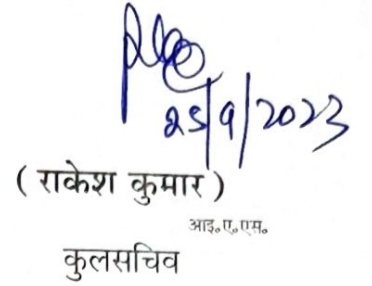 25/9/2023
( राकेश कुमार )
आइ॰ए॰एस॰
कुलसचिव